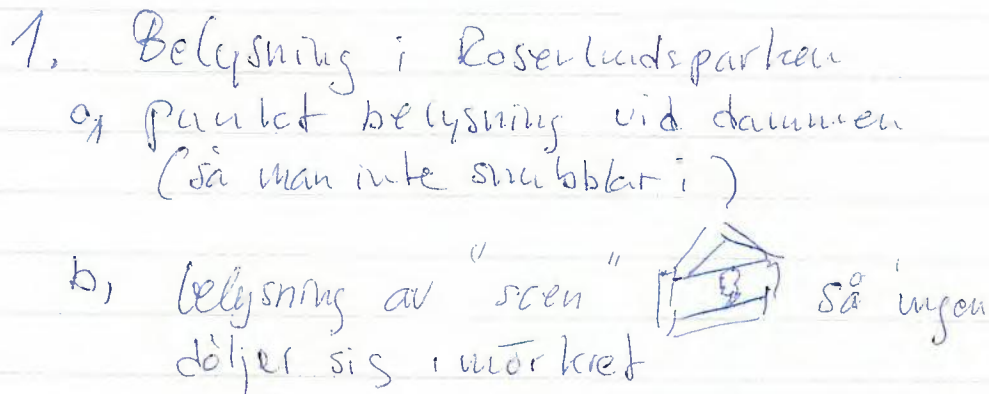 1. Belysning i Rosenlundsparken
a, punkt belysning vid dammen
(så man inte snubblar i)
b, belysning av "scen" så ingen
döljer sig i mörkret